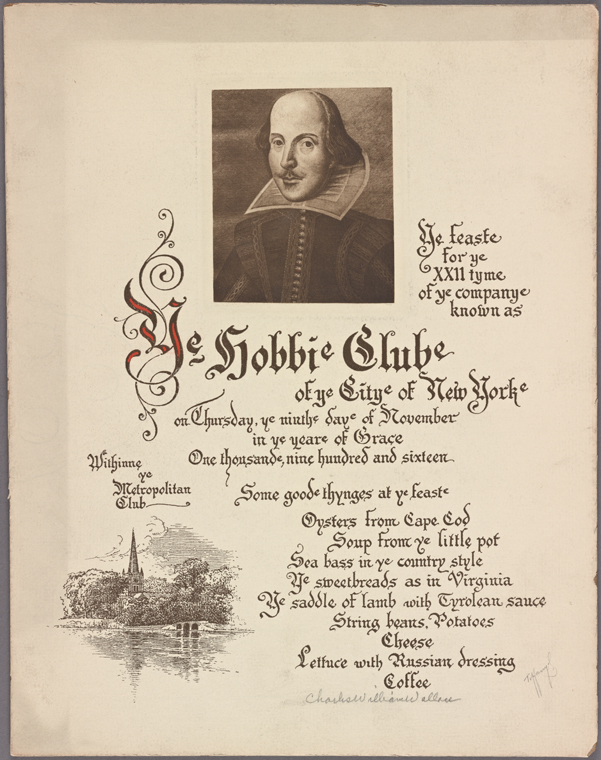 Ye feaste
for ye
XXII tyme
of ye companye
known as
Ye Hobbie Clube
of ye Citye of New Yorke
on Thursday, ye ninthe daye of November
in ye yeare of Grace
One thousande, nine hundred and sixteen
Withinne
ye
Metropolitan
Club
Some goode thynges at ye feaste
Oysters from Cape Cod
Soup from ye little pot
Sea bass in ye country style
Ye sweetbreads as in Virginia
Ye saddle of lamb with Tyrolean sauce
String beans, Potatoes
Cheese
Lettuce with Russian dressing
Coffee
Charles William Wallace